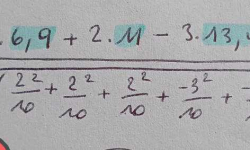 . 6,9 + 2 . 11 - 3 . 13,
2²/10 + 2²/10 + 2²/10 + -3²/10 +